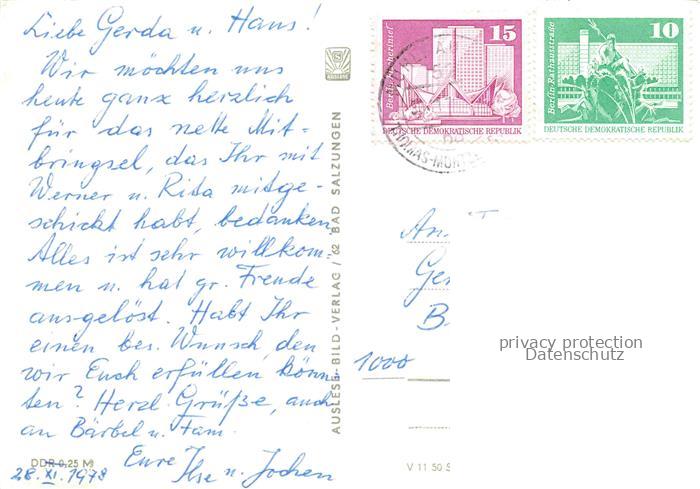 Liebe Gerda u. Hans!
Wir möchten uns
heute ganz herzlich
für das nette Mit-
bringsel, das Ihr mit
Werner u. Rita mitge-
schickt habt, bedanken.
Alles ist sehr willkom-
men u. hat gr. Freude
ausgelöst. Habt Ihr
einen bes. Wunsch, den
wir Euch erfüllen könn-
ten? Herzl. Grüße, auch
an Bärbel u. Fam.
Eure Ilse u. Jochen
DDR 0,25 M
28.XI.1978
AUSLESE
AUSLESE BILD-VERLAG / 62 BAD SALZUNGEN
15
DEUTSCHE DEMOKRATISCHE REPUBLIK
10
Berlin-Rathausstraße
DEUTSCHE DEMOKRATISCHE REPUBLIK
An
Ger
B.
privacy protection
Datenschutz
1000
V 11 50